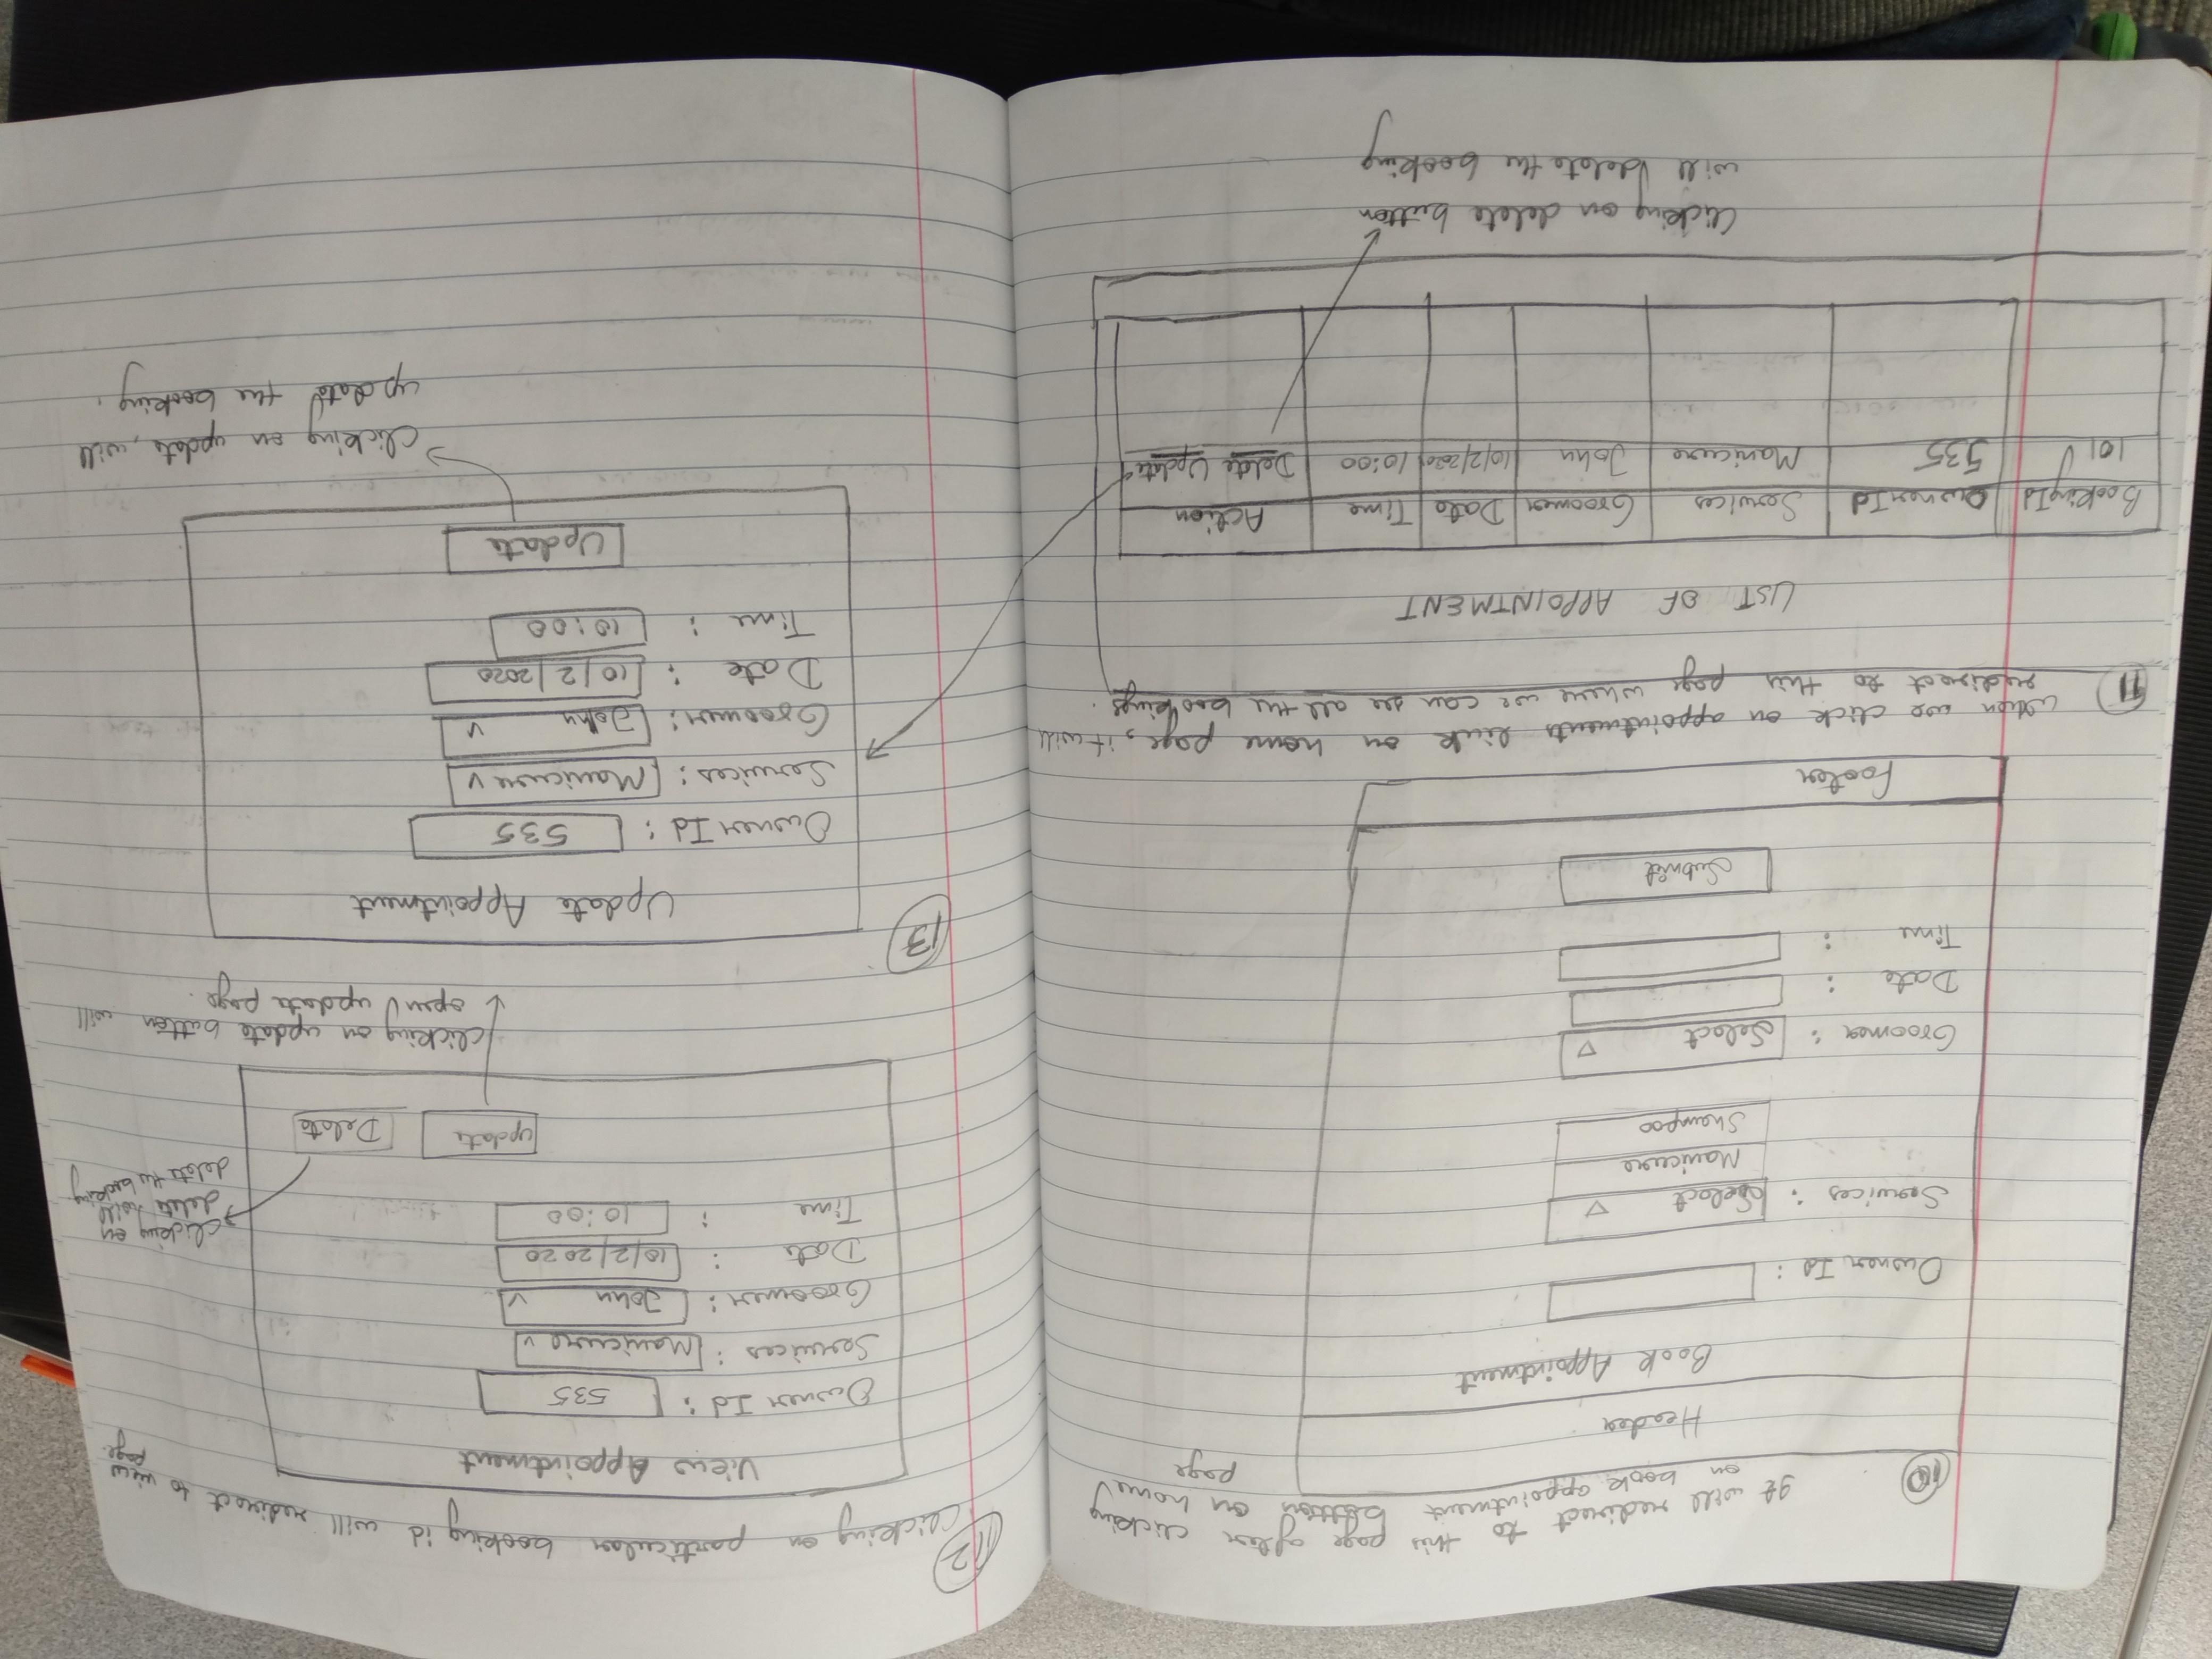 10
It will redirect to this page after clicking
on book appointment button on home
page
Header
Book Appointment
Owner Id :
Services : Select
Manicure
Shampoo
Groomer : Select
Date :
Time :
Submit
footer
11 When we click on appointments link on home page, it will
redirect to this page where we can see all the bookings.
LIST OF APPOINTMENT
BookingId OwnerId Services Groomer Date Time Action
101 535 Manicure John 10/2/2020 10:00 Delete Update
Clicking on delete button
will delete the booking
12
Clicking on particular booking id will redirect to view
page.
View Appointment
Owner Id : 535
Services : Manicure
Groomer : John
Date : 10/2/2020
Time : 10:00
clicking on
delete will
delete the booking
update Delete
clicking on update button will
open update page.
13
Update Appointment
Owner Id : 535
Services : Manicure
Groomer : John
Date : 10/2/2020
Time : 10:00
Update
Clicking on update, will
update the booking.